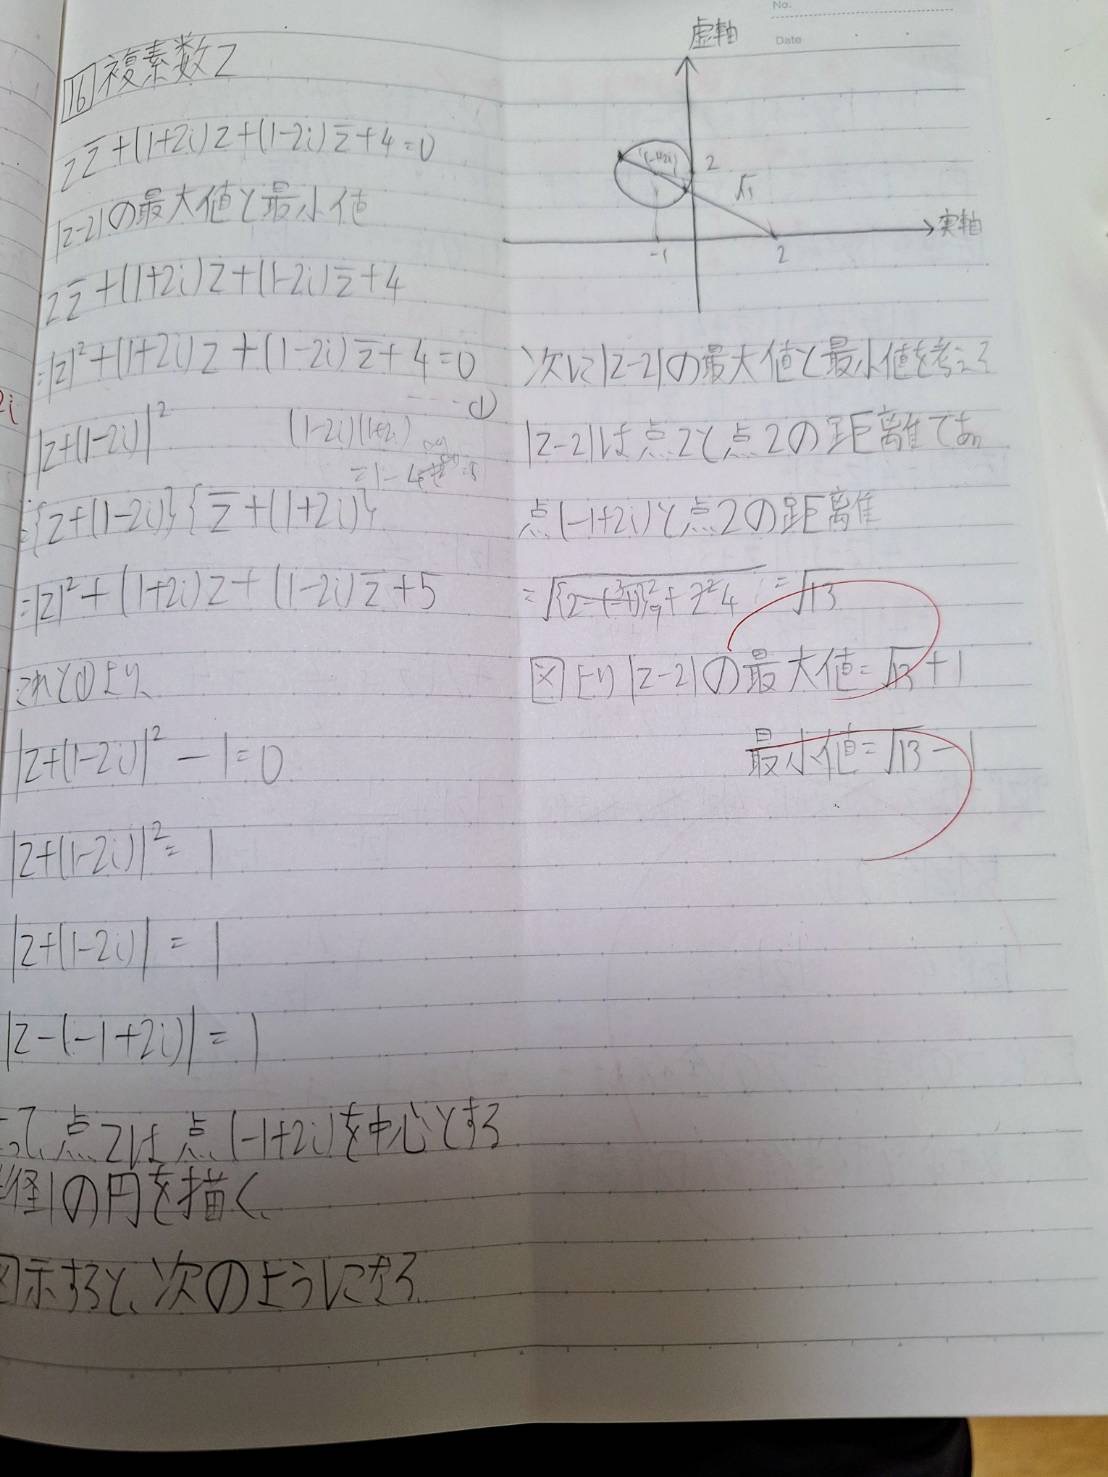 16 複素数z
zz̄+(1+2i)z+(1-2i)z̄+4=0
|z-2|の最大値と最小値
zz̄+(1+2i)z+(1-2i)z̄+4
=|z|²+(1+2i)z+(1-2i)z̄+4=0
····①
|z+(1-2i)|²
(1-2i)(1+2i)
=1-4
={z+(1-2i)}{z̄+(1+2i)}
=|z|²+(1+2i)z+(1-2i)z̄+5
これと①より、
|z+(1-2i)|²-1=0
|z+(1-2i)|²=1
|z+(1-2i)|=1
|z-(-1+2i)|=1
って、点zは点(-1+2i)を中心とする
径1の円を描く、
図示すると、次のようになる
No.
Date
虚軸
(-1+2i)
2
実軸
-1
2
次に|z-2|の最大値と最小値を考える
|z-2|は点zと点2の距離であ
点(-1+2i)と点2の距離
=√{2-(-1)}²+2² =√13
図より|z-2|の最大値=√13+1
最小値=√13-1
2i